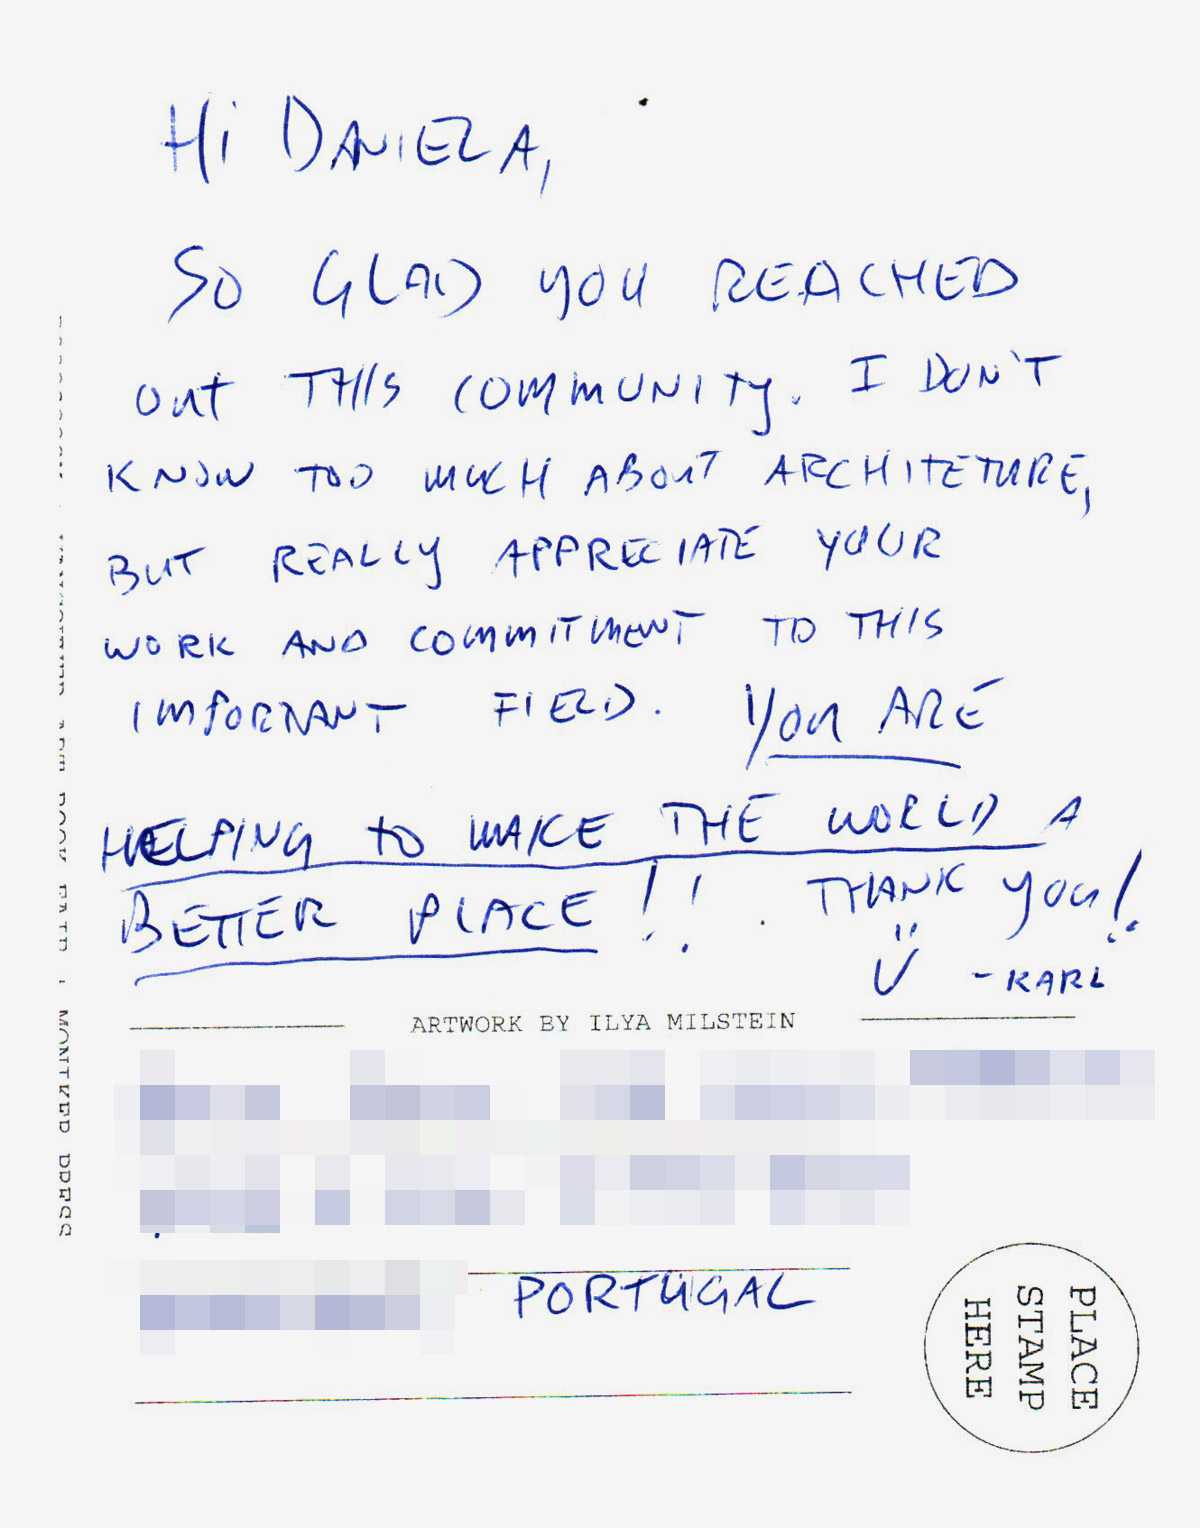 Hi DANIELA,
SO GLAD YOU REACHED
OUT THIS COMMUNITY. I DON'T
KNOW TOO MUCH ABOUT ARCHITETURE,
BUT REALLY APPRECIATE YOUR
WORK AND COMMITMENT TO THIS
IMPORTANT FIELD. YOU ARE
HELPING TO MAKE THE WORLD A
BETTER PLACE!! THANK YOU!
-KARL
ARTWORK BY ILYA MILSTEIN
PORTUGAL
PLACE
STAMP
HERE